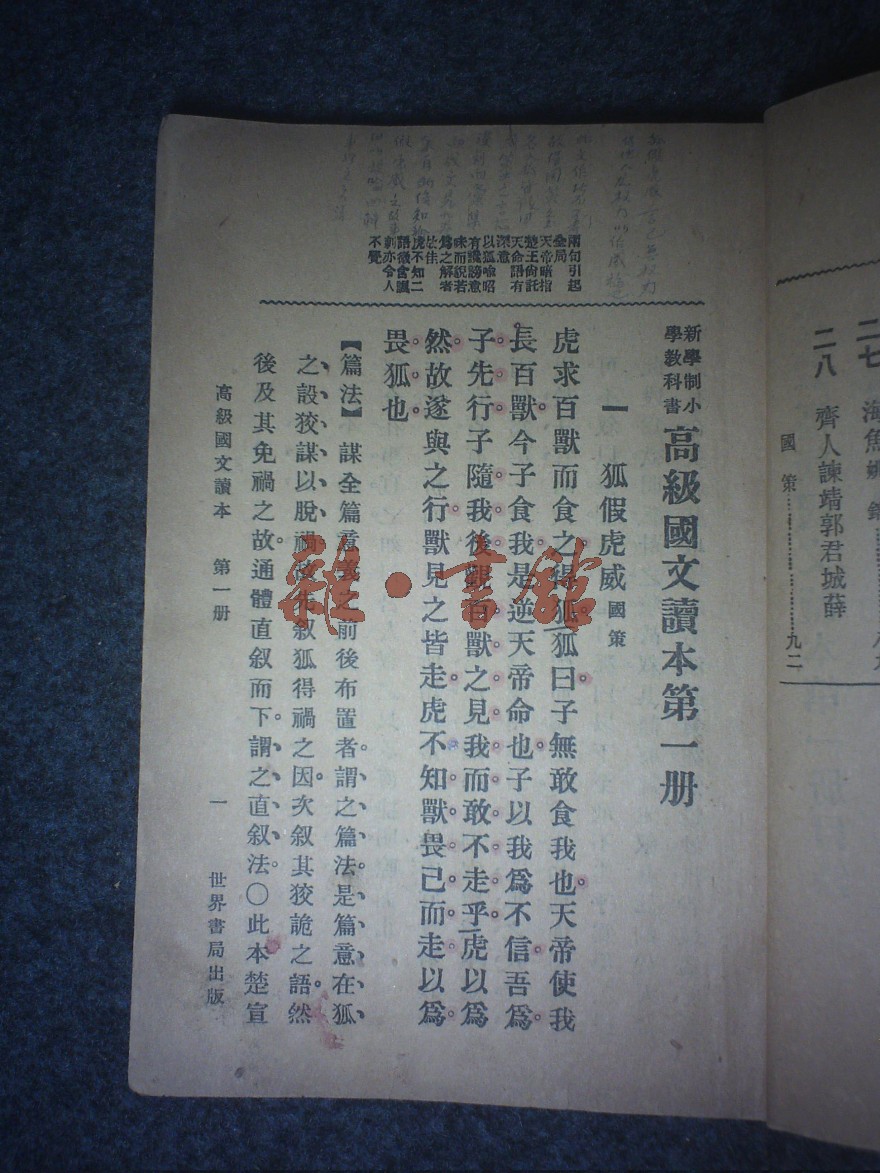 二七
二八　齊人諫靖郭君城薛
國策……九二
新學制小學教科書　高級國文讀本第一册
一　狐假虎威　國策
虎求百獸而食之得狐狐曰子無敢食我也天帝使我
長百獸今子食我是逆天帝命也子以我爲不信吾爲
子先行子隨我後觀百獸之見我而敢不走乎虎以爲
然故遂與之行獸見之皆走虎不知獸畏己而走以爲
畏狐也
兩句引起
全局
天帝暗指
楚王尙託
天命語有
深意
以狐喻昭
有譏謗意
味而説若
爲之解者
妙佳
虎不知二
語微含諷
刺亦令人
不覺
【篇法】　謀全篇意義之前後布置者。謂之篇法。是篇意在狐、
之、設狡謀以脫禍。故先叙狐得禍之因。次叙其狡詭之語。然
後及其免禍之故。通體直叙而下。謂之直叙法。〇此本楚宣
高級國文讀本　第一册　一　世界書局出版
雜·書館